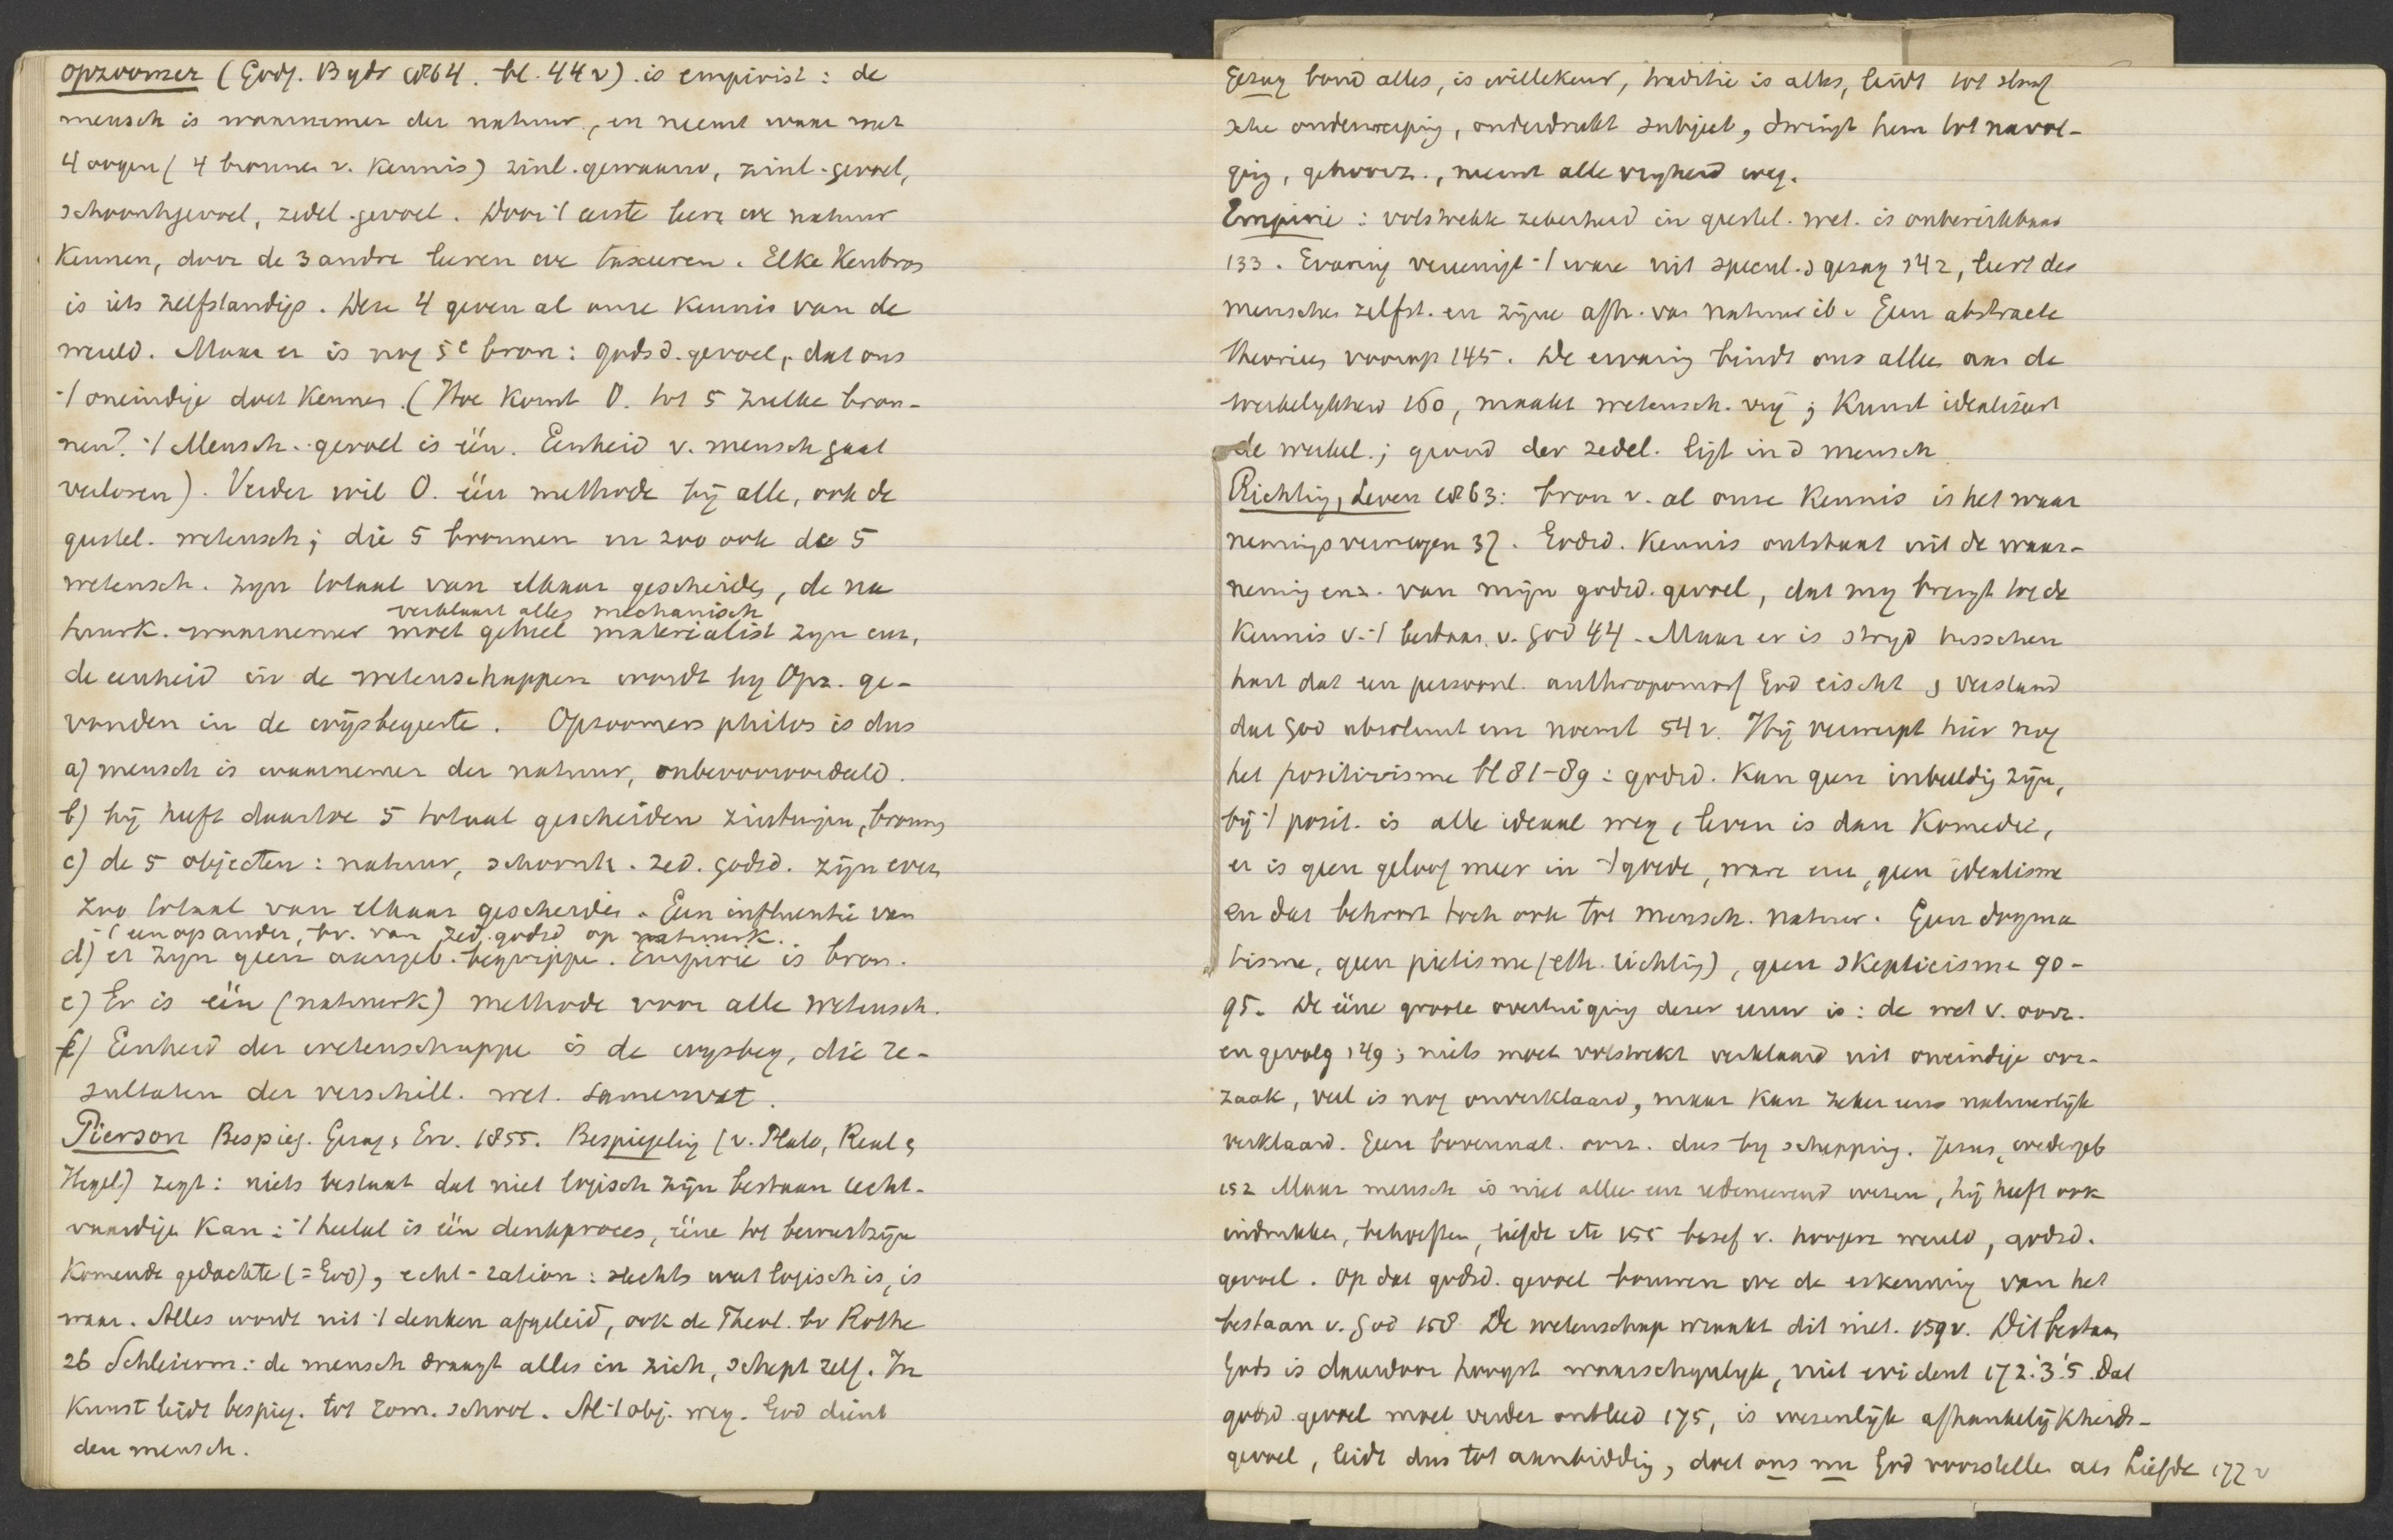 Opzoomer (Godg. Bydr 1864. bl. 44 v). is empirist: de
mensch is waarnemer der natuur, en neemt waar met
4 oogen (4 bronnen v. kennis) zinl. gewaarw, zinl. gevoel,
schoonhgevoel, zedel. gevoel. Door 't eerste leere we natuur
kennen, door de 3 andre leeren we taxeeren. Elke Kenbron
is iets zelfstandigs. Deze 4 geven al onze kennis van de
wereld. Maar er is nog 5e bron: godsd. gevoel, dat ons
't oneindige doet kennen. (Hoe komt O. tot 5 zulke bron-
nen? 't Mensch. gevoel is één. Eenheid v. mensch gaat
verloren). Verder wil O. één methode bij alle, ook de
geestel. wetensch; die 5 bronnen en zoo ook de 5
wetensch. zyn totaal van elkaar gescheiden, de na
verklaart alles mechanisch
tuurk. waarnemer moet geheel materialist zyn enz,
de eenheid in de wetenschappen wordt by Opz. ge-
vonden in de wijsbegeerte. Opzoomers philos is dus
a) mensch is waarnemer der natuur, onbevooroordeeld.
b) hij heeft daartoe 5 totaal gescheiden zintuigen, bronnen
c) de 5 objecten: natuur, schoonh. zed. godsd. zijn even
zoo totaal van elkaar gescheiden. Geen influentie van
't een op ander, bv. van zed. godsd op natuurk.
d) er zyn geen aangeb. begrippen. Empirie is bron.
e) Er is één (natuurk) methode voor alle wetensch.
f) Eenheid der wetenschappen is de wysbeg, die re-
sultaten der verschill. wet. samenvat.
Pierson Bespieg. Gezag, Erv. 1855. Bespiegeling (v. Plato, Real,
Hegel) zegt: niets bestaat dat niet logisch zijn bestaan recht-
vaardigen kan: 't heelal is één denkproces, ééne tot bewustzijn
komende gedachte (= God), echt-ration: slechts wat logisch is, is
waar. Alles wordt uit 't denken afgeleid, ook de Theol. bv Rothe
26 Schleierm: de mensch draagt alles in zich, schept zelf. In
Kunst leidt bespieg. tot rom. school. Al 't obj. weg. God dient
den mensch.
Gezag bouwd alles, is willekeur, traditie is alles, leidt tot slaaf
sche onderwerping, onderdrukt subject, dwingt hem tot navol-
ging, gehoorz., neemt alle vryheid weg.
Empirie: volstrekte zekerheid in geestel. wet. is onbereikbaar
133. Ervaring vereenigt 't ware uit specul. & gezag 142, leert des
menschen zelfst. en zijne afh. van natuur ib. Geen abstracte
theorien voorop 145. De ervaring bindt ons allen aan de
werkelykheid 160, maakt wetensch. vrij; kunst idealiseert
de werkel.; grond der zedel. ligt in d mensch
Richting, Leven 1863: bron v. al onze kennis is het waar
nemingsvermogen 37. Godsd. kennis ontstaat uit de waar-
neming enz. van mijn godsd. gevoel, dat my brengt tot de
kennis v. 't bestaan v. God 44. Maar er is stryd tusschen
hart dat een persoonl. anthropomorf God eischt & verstand
dat God absoluut enz noemt 54 v. Hij verwerpt hier nog
het positivisme bl 81-89: godsd. kan geen inbeelding zijn,
bij 't posit. is alle ideaal weg, leven is dan komedie,
er is geen geloof meer in 't goede, ware enz, geen idealisme
en dat behoort toch ook tot mensch. natuur. Geen dogma
tisme, geen pietisme (eth. richting), geen skepticisme 90-
95. De ééne groote overtuiging dezer eeuw is: de wet v. oorz.
en gevolg 149; niets moet volstrekt verklaard uit oneindige oor-
zaak, veel is nog onverklaard, maar kan zeker eens natuurlyk
verklaard. Geen bovennat. oorz. dus by schepping. Jezus, wedergeb
152 Maar mensch is niet alleen een redeneerend wezen, hij heeft ook
indrukken, behoeften, liefde etc 155 besef v. hoogere wereld, godsd.
gevoel. Op dat godsd. gevoel bouwen we de erkenning van het
bestaan v. God 158 De wetenschap wraakt dit niet. 159 v. Dit bestaan
Gods is daardoor hoogst waarschynlyk, niet evident 172.'3.'5. Dat
godsd gevoel moet verder ontleed 175, is wezenlijk afhankelijkheids-
gevoel, leidt dus tot aanbidding, doet ons nu God voorstellen als Liefde 177 v